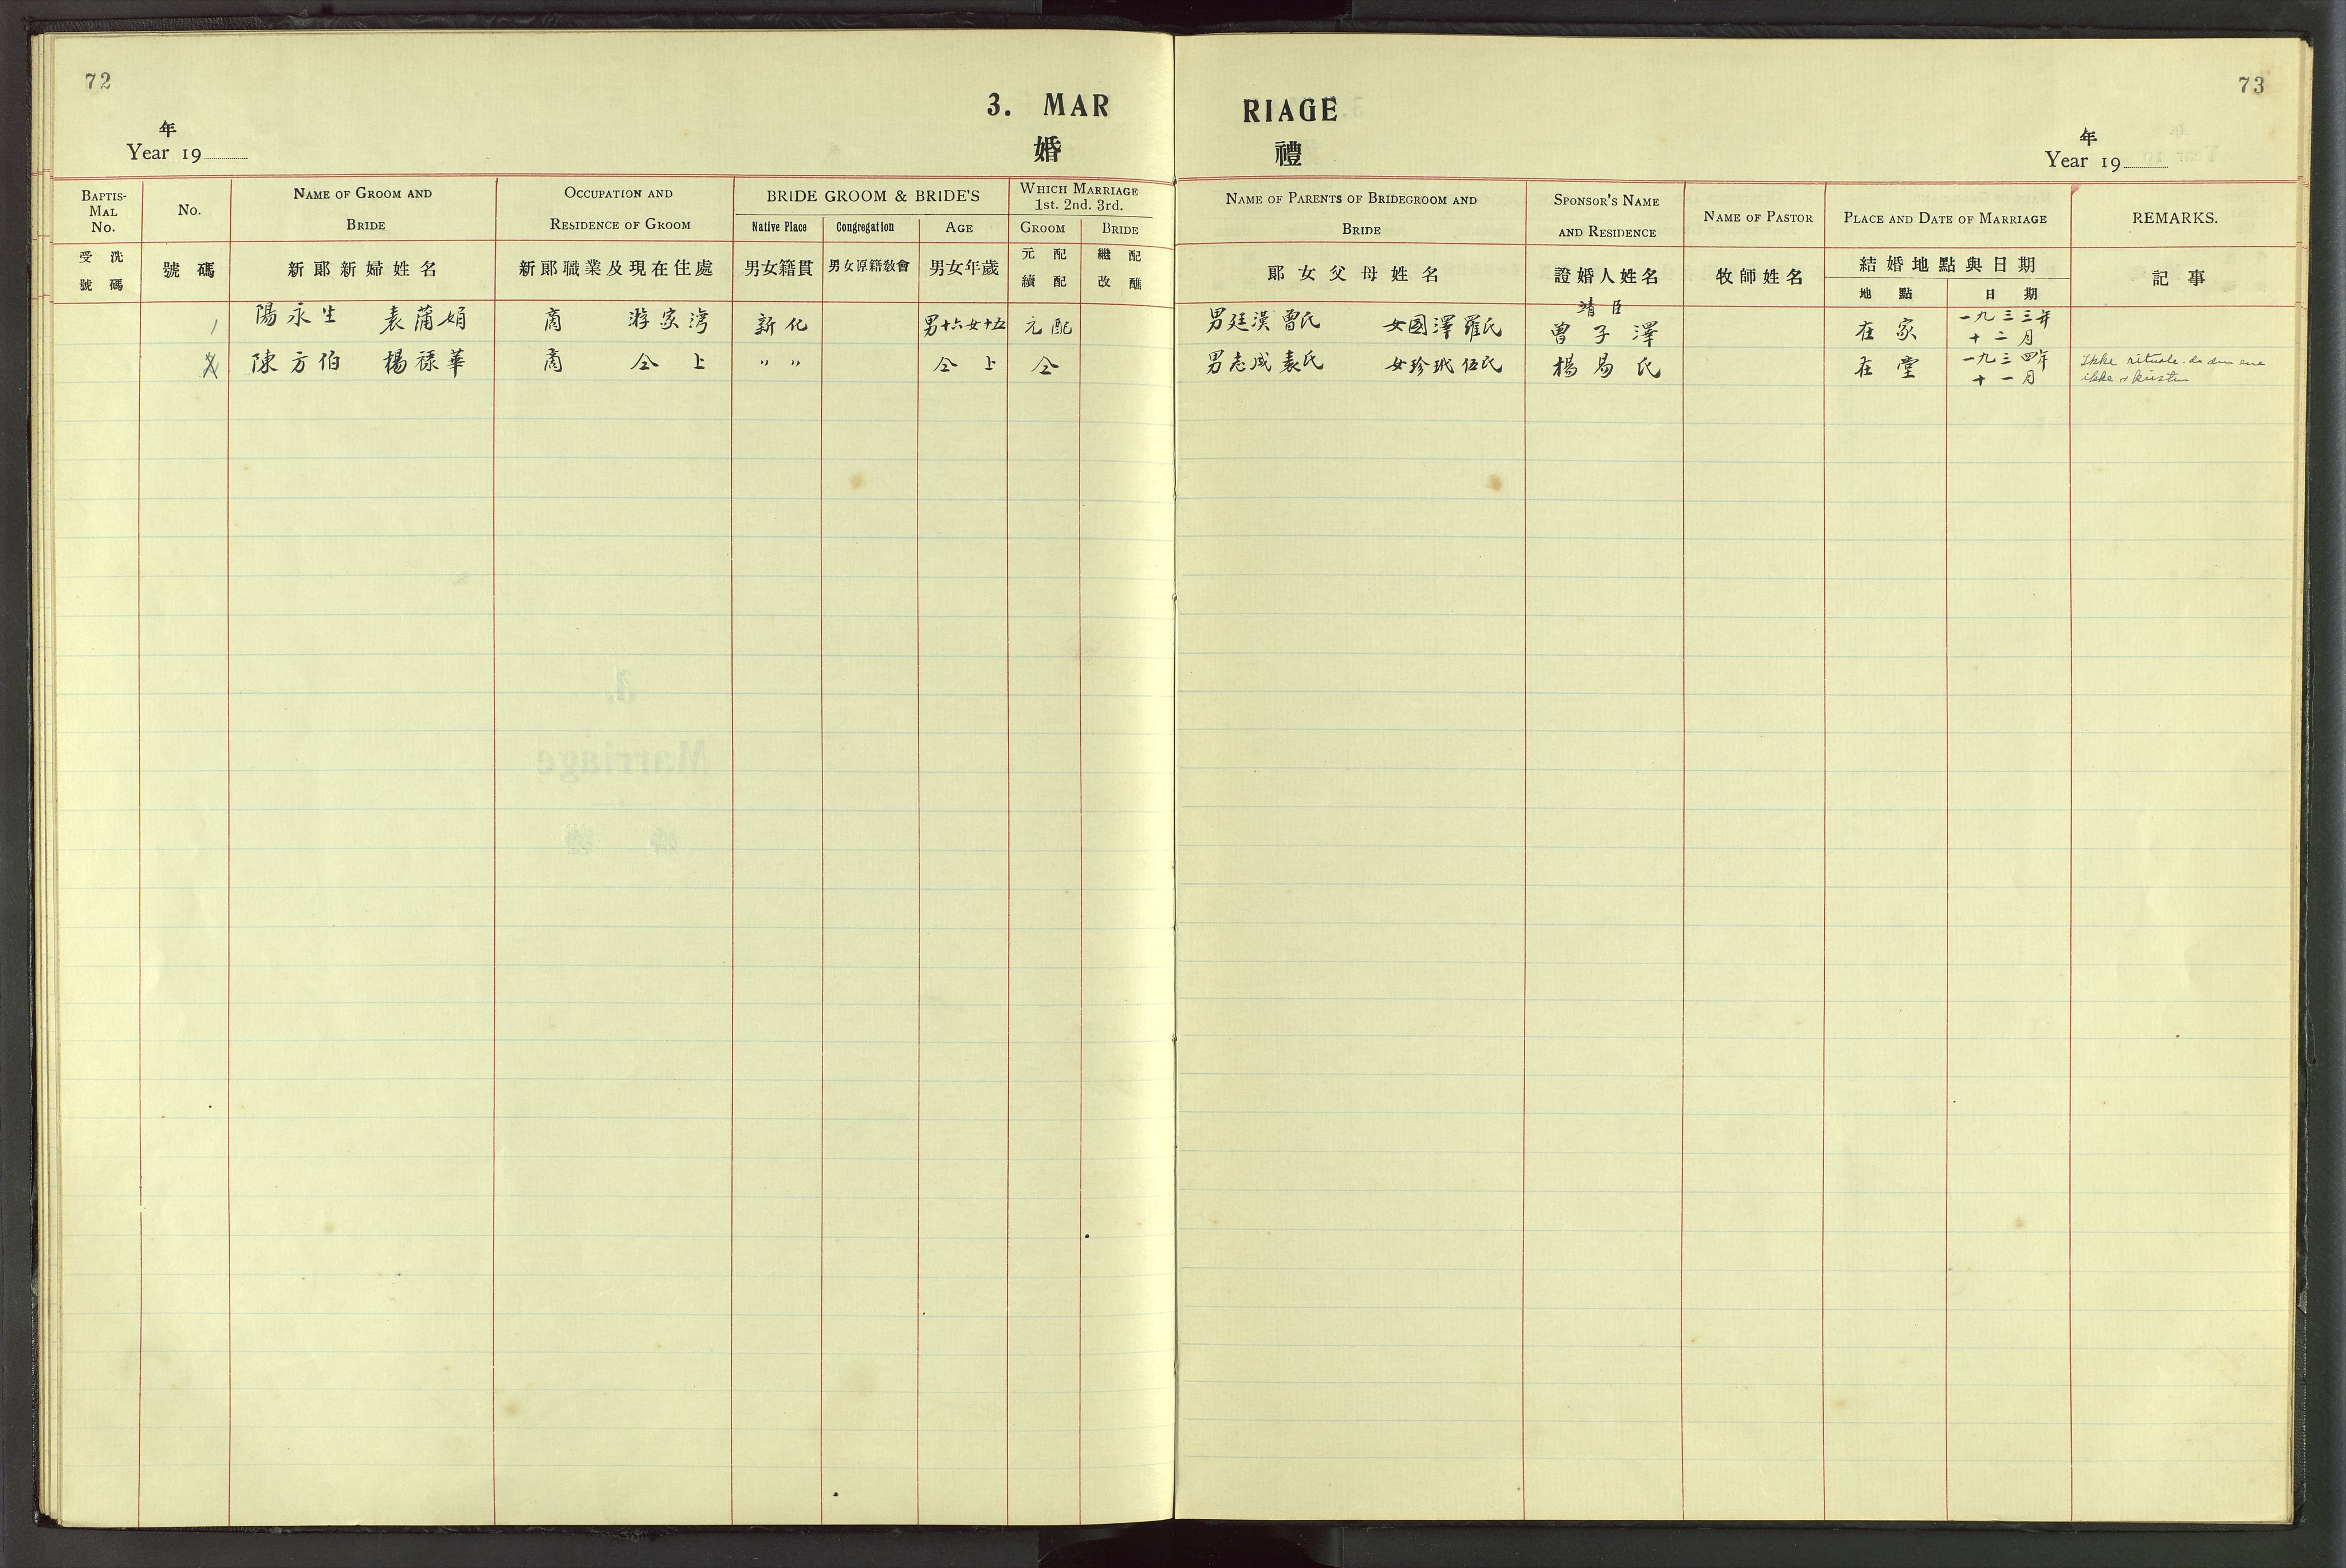 72
3. MAR
婚
年
Year 19
BAPTIS-
MAL
NO.
No.
NAME OF GROOM AND
BRIDE
OCCUPATION AND
RESIDENCE OF GROOM
BRIDE GROOM & BRIDE'S
Native Place
Congregation
AGE
WHICH MARRIAGE
1st. 2nd. 3rd.
GROOM
BRIDE
受洗
號碼
號碼
新郎新婦姓名
新郎職業及現在住處
男女籍貫
男女原籍敎會
男女年歲
元配
續配
繼配
改醮
73
RIAGE
禮
年
Year 19
NAME OF PARENTS OF BRIDEGROOM AND
BRIDE
SPONSOR'S NAME
AND RESIDENCE
NAME OF PASTOR
PLACE AND DATE OF MARRIAGE
REMARKS.
郎女父母姓名
證婚人姓名
牧師姓名
結婚地點與日期
地點
日期
記事
1 陽永生 袁蒲娟 商 游家灣 新化 男十六女十五 元配 男廷漢曾氏 女國澤羅氏 靖臣 曾子澤 在家 一九三三年
十二月
陳方伯 楊祿華 商 仝上 〃〃 仝上 仝 男志成袁氏 女珍玳伍氏 楊易氏 在堂 一九三四年
十一月
Ikke rituale. da den ene
ikke er kristen